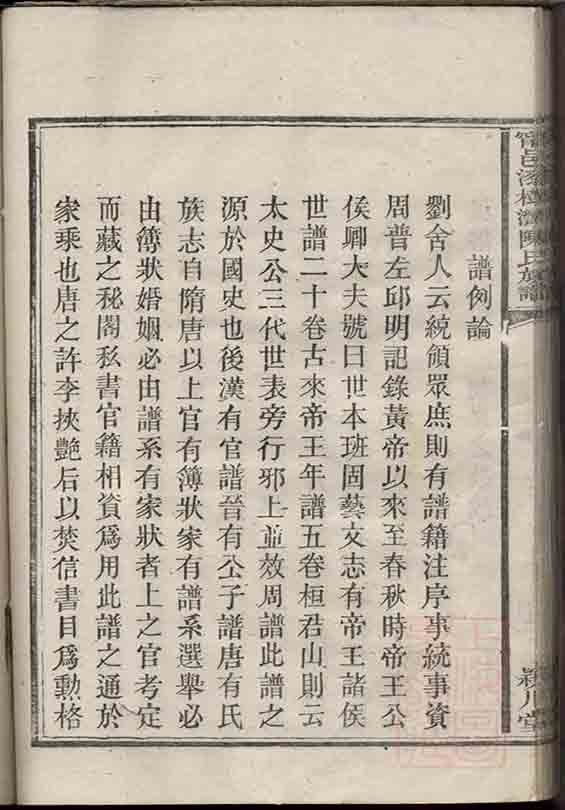 譜例論
劉舍人云統領眾庶則有譜籍注序事統事資
周普左邱明記錄黃帝以來至春秋時帝王公
侯卿大夫號曰世本班固藝文志有帝王諸侯
世譜二十卷古來帝王年譜五卷桓君山則云
太史公三代世表旁行邪上並效周譜此譜之
源於國史也後漢有官譜晉有公子譜唐有氏
族志自隋唐以上官有簿狀家有譜系選舉必
由簿狀婚姻必由譜系有家狀者上之官考定
而藏之秘閣私書官籍相資爲用此譜之通於
家乘也唐之許李挾艷后以焚信書目爲勳格
陳氏族譜
潁川堂